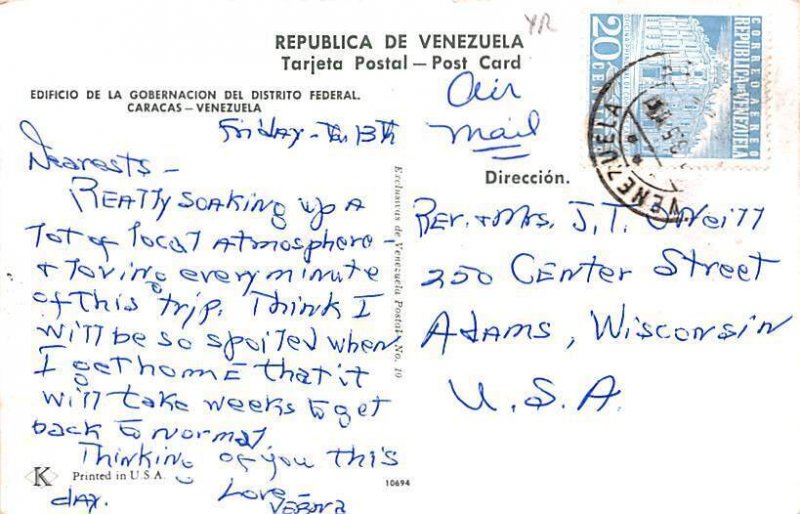 REPUBLICA DE VENEZUELA
Tarjeta Postal — Post Card
EDIFICIO DE LA GOBERNACION DEL DISTRITO FEDERAL.
CARACAS — VENEZUELA
YR
Air
Mail
20 CENT
CORREO AEREO
REPUBLICA DE VENEZUELA
VENEZUELA
Friday - 13th
Dearests -
Really soaking up a
lot of local atmosphere -
& loving every minute
of this trip. Think I
will be so spoiled when
I get home that it
will take weeks to get
back to normal.
Thinking of you this
day. Love -
Verona
Exclusivas de Venezuela Postal No. 10
Dirección.
Rev. & Mrs. J. T. O'Neill
250 Center Street
Adams, Wisconsin
U. S. A.
K Printed in U.S.A.
10694